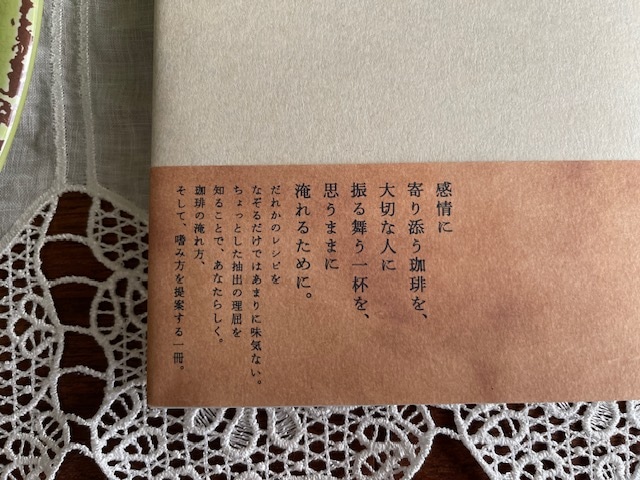 感情に
寄り添う珈琲を、
大切な人に
振る舞う一杯を、
思うままに
淹れるために。
だれかのレシピを
なぞるだけではあまりに味気ない。
ちょっとした抽出の理屈を
知ることで、あなたらしく。
珈琲の淹れ方、
そして、嗜み方を提案する一冊。